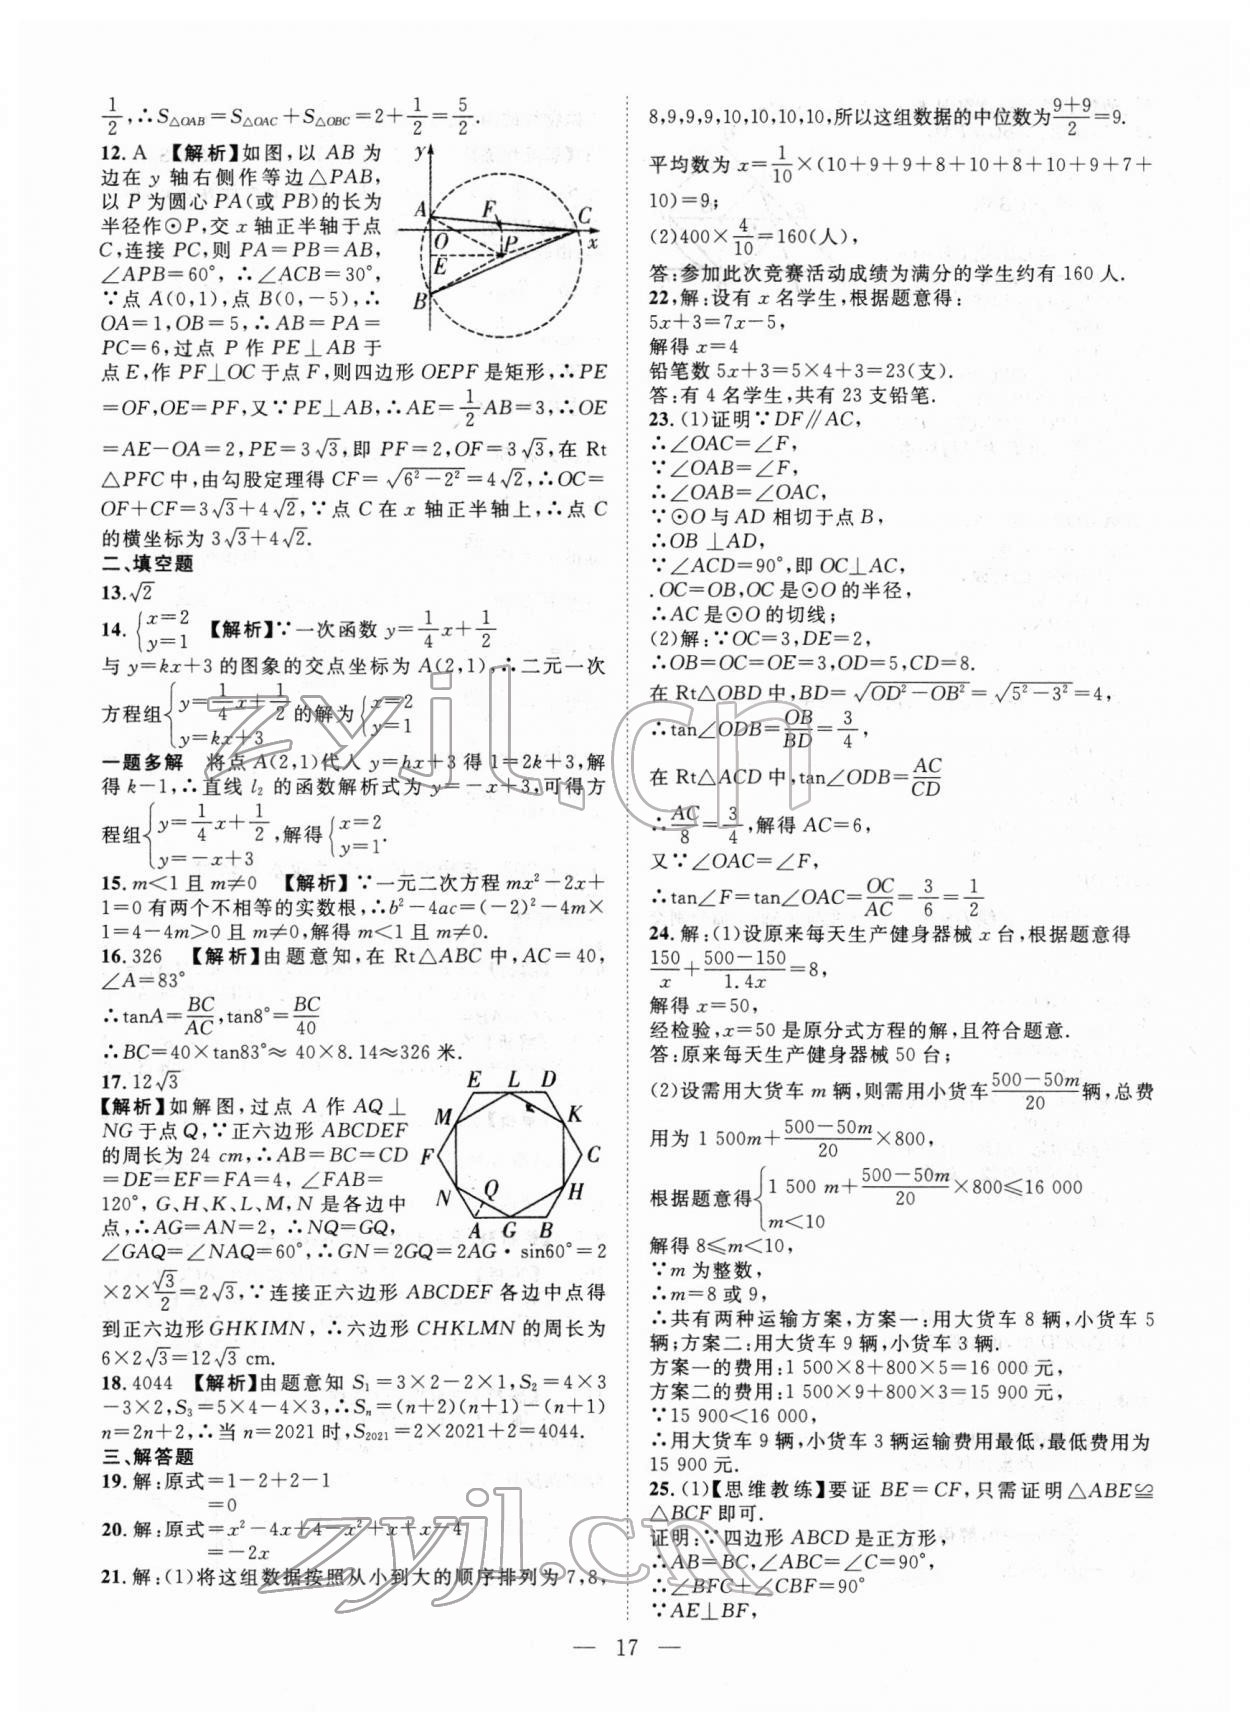 1/2,∴S△OAB=S△OAC+S△OBC=2+1/2=5/2.
12.A 【解析】如图,以 AB 为
边在 y 轴右侧作等边△PAB,
以 P 为圆心 PA(或 PB)的长为
半径作⊙P,交 x 轴正半轴于点
C,连接 PC,则 PA=PB=AB,
∠APB=60°,∴∠ACB=30°,
∵点 A(0,1),点 B(0,-5),∴
OA=1,OB=5,∴AB=PA=
PC=6,过点 P 作 PE⊥AB 于
y A F C O P x E B
点 E,作 PF⊥OC于点 F,则四边形 OEPF 是矩形,∴PE
=OF,OE=PF,又∵PE⊥AB,∴AE=1/2AB=3,∴OE
=AE-OA=2,PE=3√3,即 PF=2,OF=3√3,在 Rt
△PFC 中,由勾股定理得 CF=√(6²-2²)=4√2,∴OC=
OF+CF=3√3+4√2,∵点 C 在 x 轴正半轴上,∴点 C
的横坐标为 3√3+4√2.
二、填空题
13.√2
14.{x=2 y=1 【解析】∵一次函数 y=1/4x+1/2
与 y=kx+3 的图象的交点坐标为 A(2,1),∴二元一次
方程组{y=1/4x+1/2 y=kx+3 的解为{x=2 y=1
一题多解 将点 A(2,1)代人 y=hx+3 得 1=2k+3,解
得 k-1,∴直线 l₂ 的函数解析式为 y=-x+3,可得方
程组{y=1/4x+1/2 y=-x+3,解得{x=2 y=1.
15.m<1 且 m≠0 【解析】∵一元二次方程 mx²-2x+
1=0 有两个不相等的实数根,∴b²-4ac=(-2)²-4m×
1=4-4m>0 且 m≠0,解得 m<1且 m≠0.
16.326 【解析】由题意知,在 Rt△ABC 中,AC=40,
∠A=83°
∴tanA=BC/AC,tan8°=BC/40
∴BC=40×tan83°≈ 40×8.14≈326 米.
17.12√3
【解析】如解图,过点 A 作 AQ⊥
NG于点 Q,∵正六边形 ABCDEF
的周长为 24 cm,∴AB=BC=CD
=DE=EF=FA=4,∠FAB=
120°,G、H、K、L、M、N 是各边中
点,∴AG=AN=2,∴NQ=GQ,
E L D M K F C N Q H A G B
∠GAQ=∠NAQ=60°,∴GN=2GQ=2AG·sin60°=2
×2×√3/2=2√3,∵连接正六边形 ABCDEF 各边中点得
到正六边形GHKIMN,∴六边形 CHKLMN 的周长为
6×2√3=12√3 cm.
18.4044 【解析】由题意知 S₁=3×2-2×1,S₂=4×3
-3×2,S₃=5×4-4×3,∴Sₙ=(n+2)(n+1)-(n+1)
n=2n+2,∴当 n=2021 时,S₂₀₂₁=2×2021+2=4044.
三、解答题
19.解:原式=1-2+2-1
=0
20.解:原式=x²-4x+4-x²+x+x-4
=-2x
21.解:(1)将这组数据按照从小到大的顺序排列为 7,8,
8,9,9,9,10,10,10,10,所以这组数据的中位数为(9+9)/2=9.
平均数为 x=1/10×(10+9+9+8+10+8+10+9+7+
10)=9;
(2)400×4/10=160(人),
答:参加此次竞赛活动成绩为满分的学生约有 160 人.
22.解:设有 x 名学生,根据题意得:
5x+3=7x-5,
解得 x=4
铅笔数 5x+3=5×4+3=23(支).
答:有 4 名学生,共有 23 支铅笔.
23.(1)证明∵DF∥AC,
∴∠OAC=∠F,
∵∠OAB=∠F,
∴∠OAB=∠OAC,
∵⊙O 与 AD 相切于点 B,
∴OB⊥AD,
∵∠ACD=90°,即 OC⊥AC,
.OC=OB,OC是⊙O 的半径,
∴AC 是⊙O 的切线;
(2)解:∵OC=3,DE=2,
∴OB=OC=OE=3,OD=5,CD=8.
在 Rt△OBD 中,BD=√(OD²-OB²)=√(5²-3²)=4,
∴tan∠ODB=OB/BD=3/4,
在 Rt△ACD 中,tan∠ODB=AC/CD
∴AC/8=3/4,解得 AC=6,
又∵∠OAC=∠F,
∴tan∠F=tan∠OAC=OC/AC=3/6=1/2
24.解:(1)设原来每天生产健身器械 x 台,根据题意得
150/x+(500-150)/1.4x=8,
解得 x=50,
经检验,x=50 是原分式方程的解,且符合题意.
答:原来每天生产健身器械 50 台;
(2)设需用大货车 m 辆,则需用小货车(500-50m)/20辆,总费
用为 1 500m+(500-50m)/20×800,
根据题意得{1 500 m+(500-50m)/20×800≤16 000 m<10
解得 8≤m<10,
∵m 为整数,
∴m=8 或 9,
∴共有两种运输方案,方案一:用大货车 8 辆,小货车 5
辆;方案二:用大货车 9 辆,小货车 3 辆.
方案一的费用:1 500×8+800×5=16 000 元,
方案二的费用:1 500×9+800×3=15 900 元,
∵15 900<16 000,
∴用大货车 9 辆,小货车 3 辆运输费用最低,最低费用为
15 900 元.
25.(1)【思维教练】要证 BE=CF,只需证明△ABE≌
△BCF 即可.
证明:∵四边形 ABCD 是正方形,
∴AB=BC,∠ABC=∠C=90°,
∴∠BFC+∠CBF=90°
∵AE⊥BF,
— 17 —
zyjl.cn
zyjl.cn